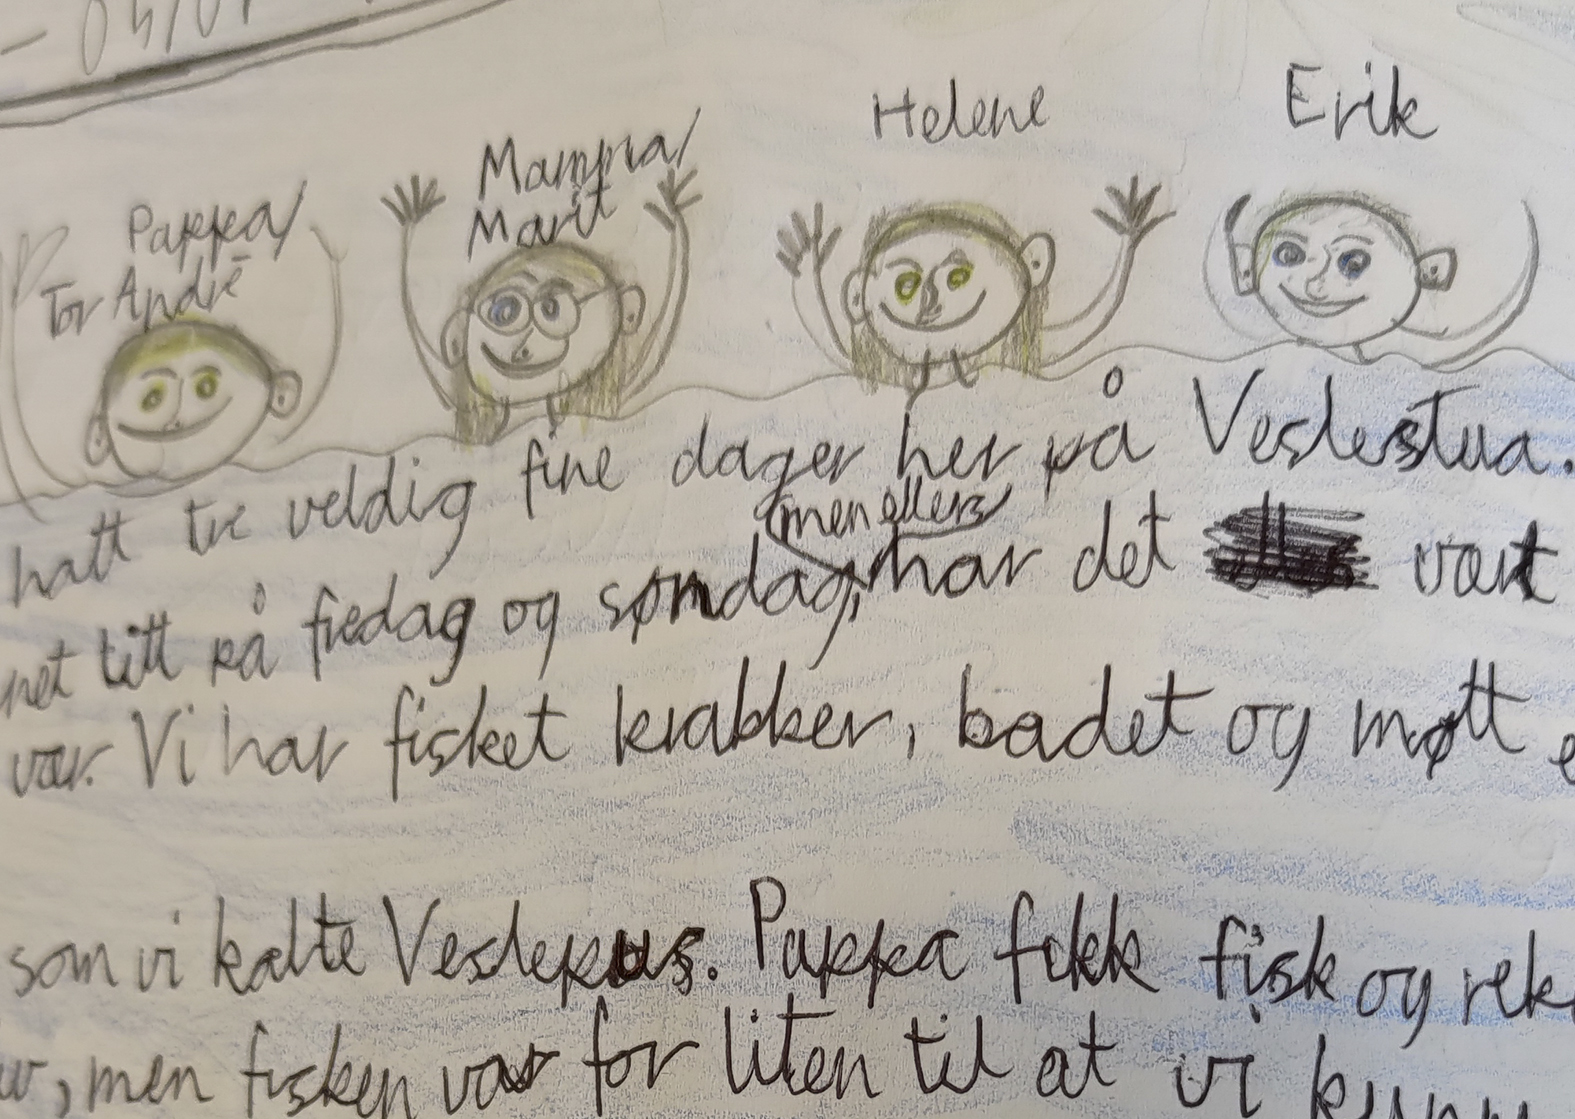 Helene
Erik
Mamma/
Marit
Pappa/
Tor André
hatt tre veldig fine dager her på Veslestua.
(men ellers
net titt på fredag og søndag, har det vært
vær. Vi har fisket krabber, badet og møtt
som vi kalte Veslepus. Pappa fikk fisk og rek
, men fisken var for liten til at vi kunn